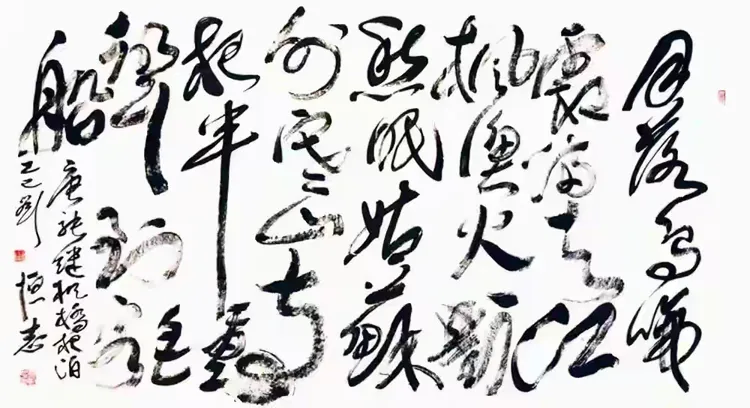 月落烏啼
霜滿天江
楓漁火對
愁眠姑蘇
外寒山寺
夜半鐘
聲到客
船
唐張継楓橋夜泊
乙巳劉恒志